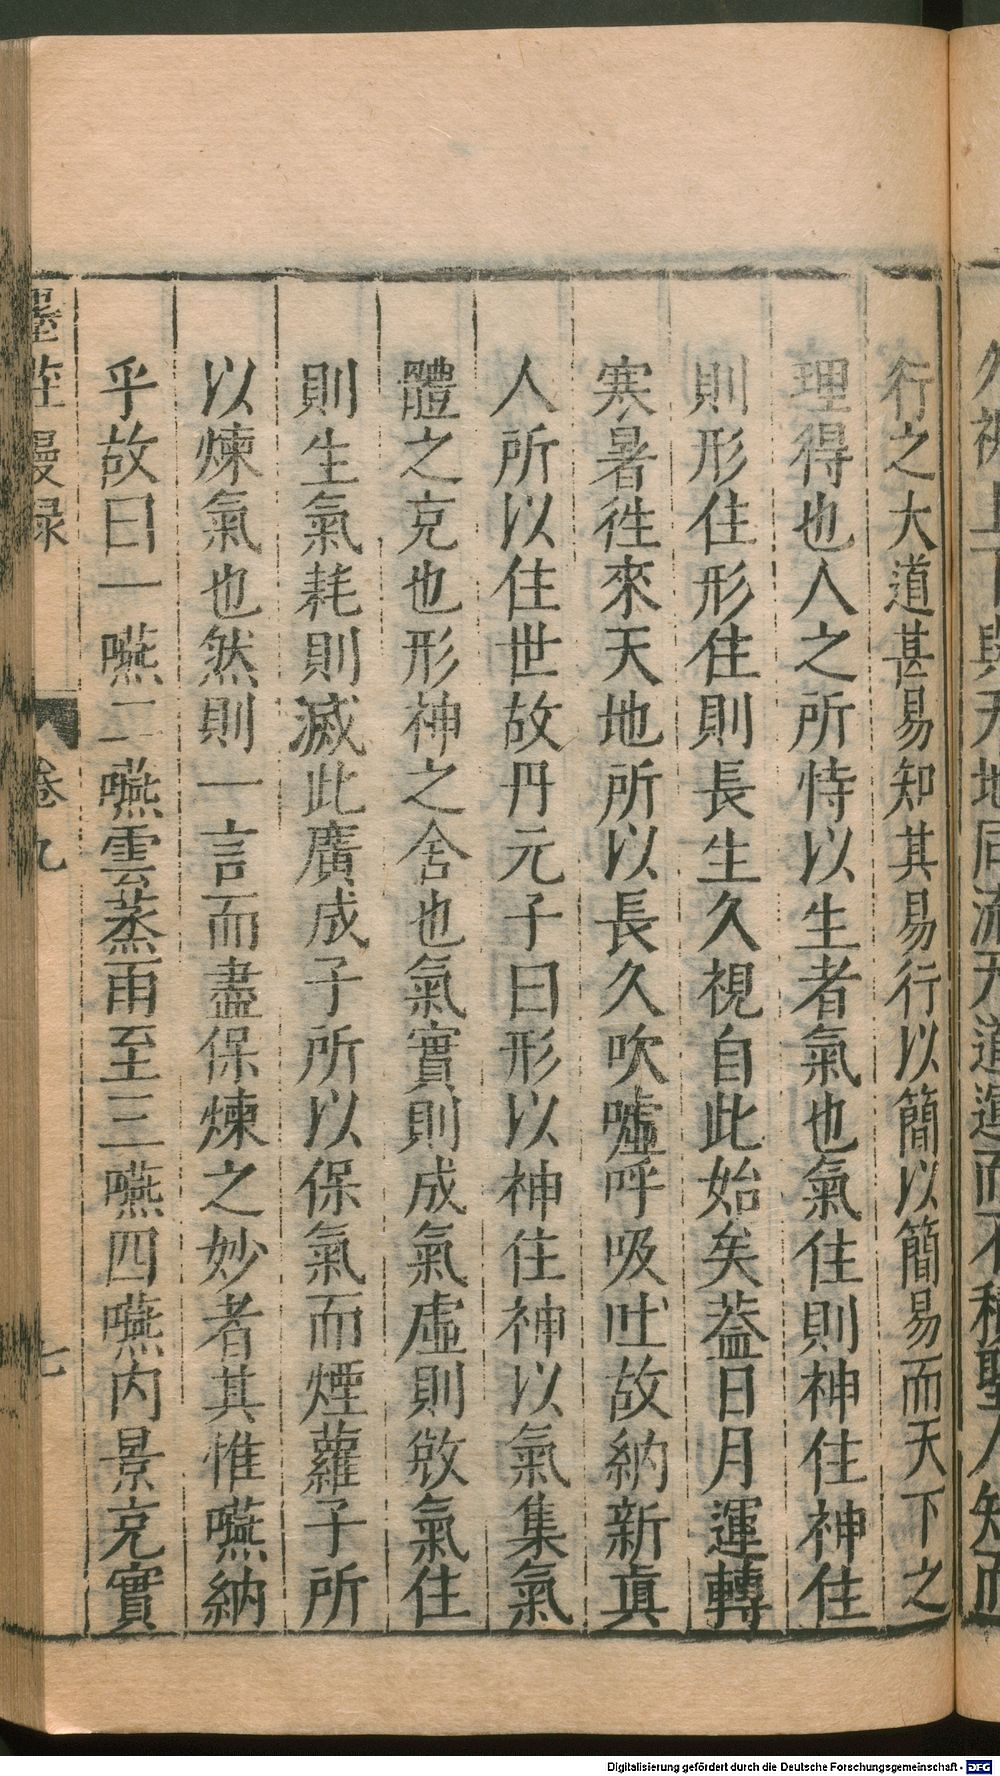 行之大道甚易知其易行以簡以簡易而天下之
理得也人之所恃以生者氣也氣住則神住神住
則形住形住則長生久視自此始矣葢日月運轉
寒暑徃來天地所以長久吹噓呼吸吐故納新眞
人所以住世故丹元子曰形以神住神以氣集氣
體之充也形神之舍也氣實則成氣虛則敓氣住
則生氣耗則滅此廣成子所以保氣而煙蘿子所
以煉氣也然則一言而盡保煉之妙者其惟嚥納
乎故曰一嚥二嚥雲蒸雨至三嚥四嚥內景充實
墨莊漫录 卷九 七
Digitalisierung gefördert durch die Deutsche Forschungsgemeinschaft - DFG